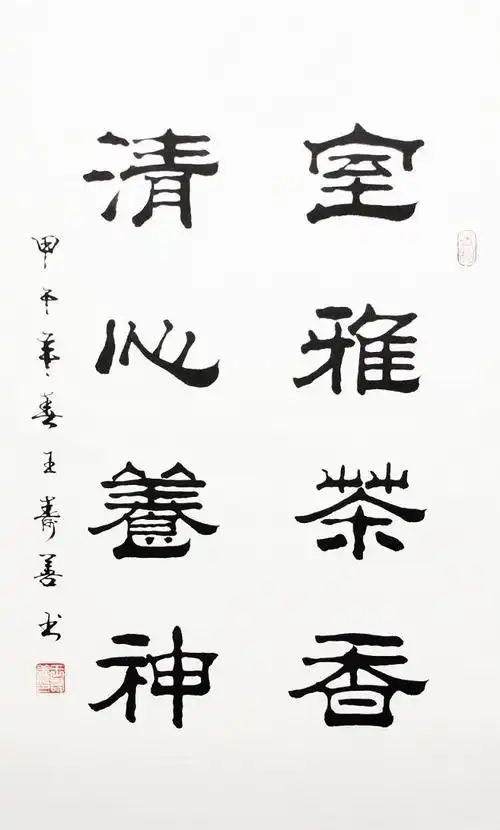 室雅茶香
清心養神
甲午 春王壽善书